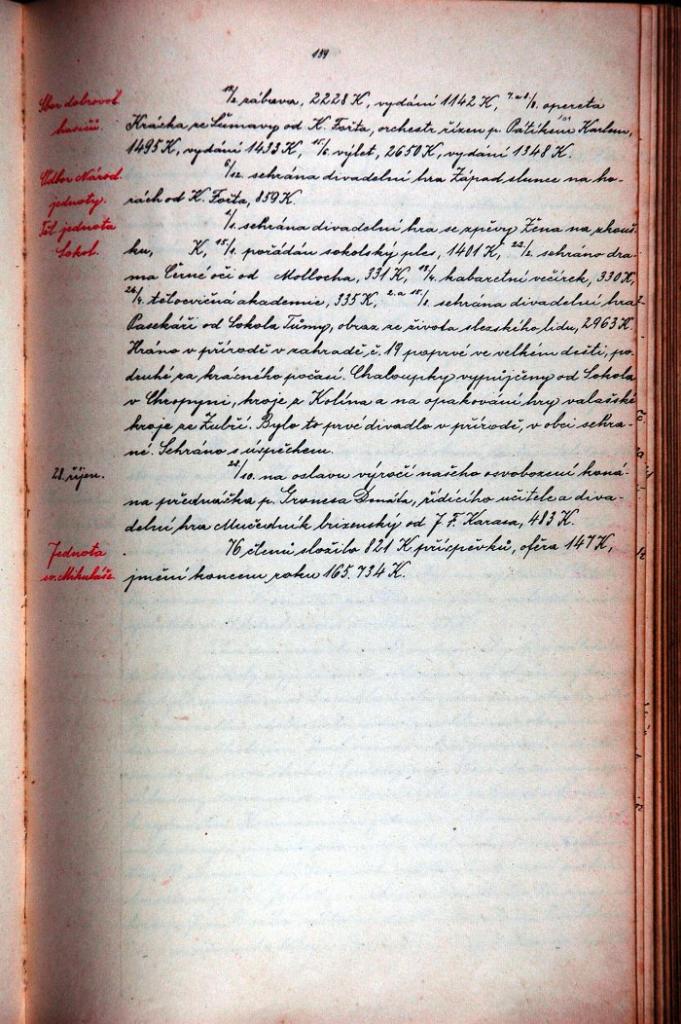 184
Sbor dobrovol.
hasičů.
zábava, 2228 K, vydání 1142 K, 7. a 8/ opereta
Kráska ze Šumavy od K. Fořta, orchestr řízen p. Karlem,
1495 K, vydání 1433 K, 15/ výlet, 2650 K, vydání 1348 K.
Odbor Národ.
jednoty.
6/12. sehrána divadelní hra Západ slunce na ho-
rách od K. Fořta, 859 K.
Těl. jednota
Sokol.
sehrána divadelní hra se zpěvy Žena na zkouš-
ku, K, 15/ pořádán sokolský ples, 1401 K, 22/2. sehráno dra-
ma Černé oči od Mollocha, 331 K, kabaretní večírek, 330 K,
26/4. tělocvičná akademie, 335 K, 2. a 15/ sehrána divadelní hra
Pasekáři od Sokola Tůmy, obraz ze života slezského lidu, 2963 K.
Hráno v přírodě v zahradě č. 19 poprvé ve velkém dešti, po-
druhé za krásného počasí. Chaloupky vypůjčeny od Sokola
v Chropyni, kroje z Kolína a na opakování hry valašské
kroje ze Zubří. Bylo to prvé divadlo v přírodě, v obci sehra-
né. Sehráno s úspěchem.
28. říjen.
28/10. na oslavu výročí našeho osvobození koná-
na přednáška p. Donáta, řídícího učitele a diva-
delní hra Mučedník brixenský od J. F. Karasa, 483 K.
Jednota
sv. Mikuláše.
76 členů složilo 821 K příspěvků, ofěra 147 K,
jmění koncem roku 165.734 K.